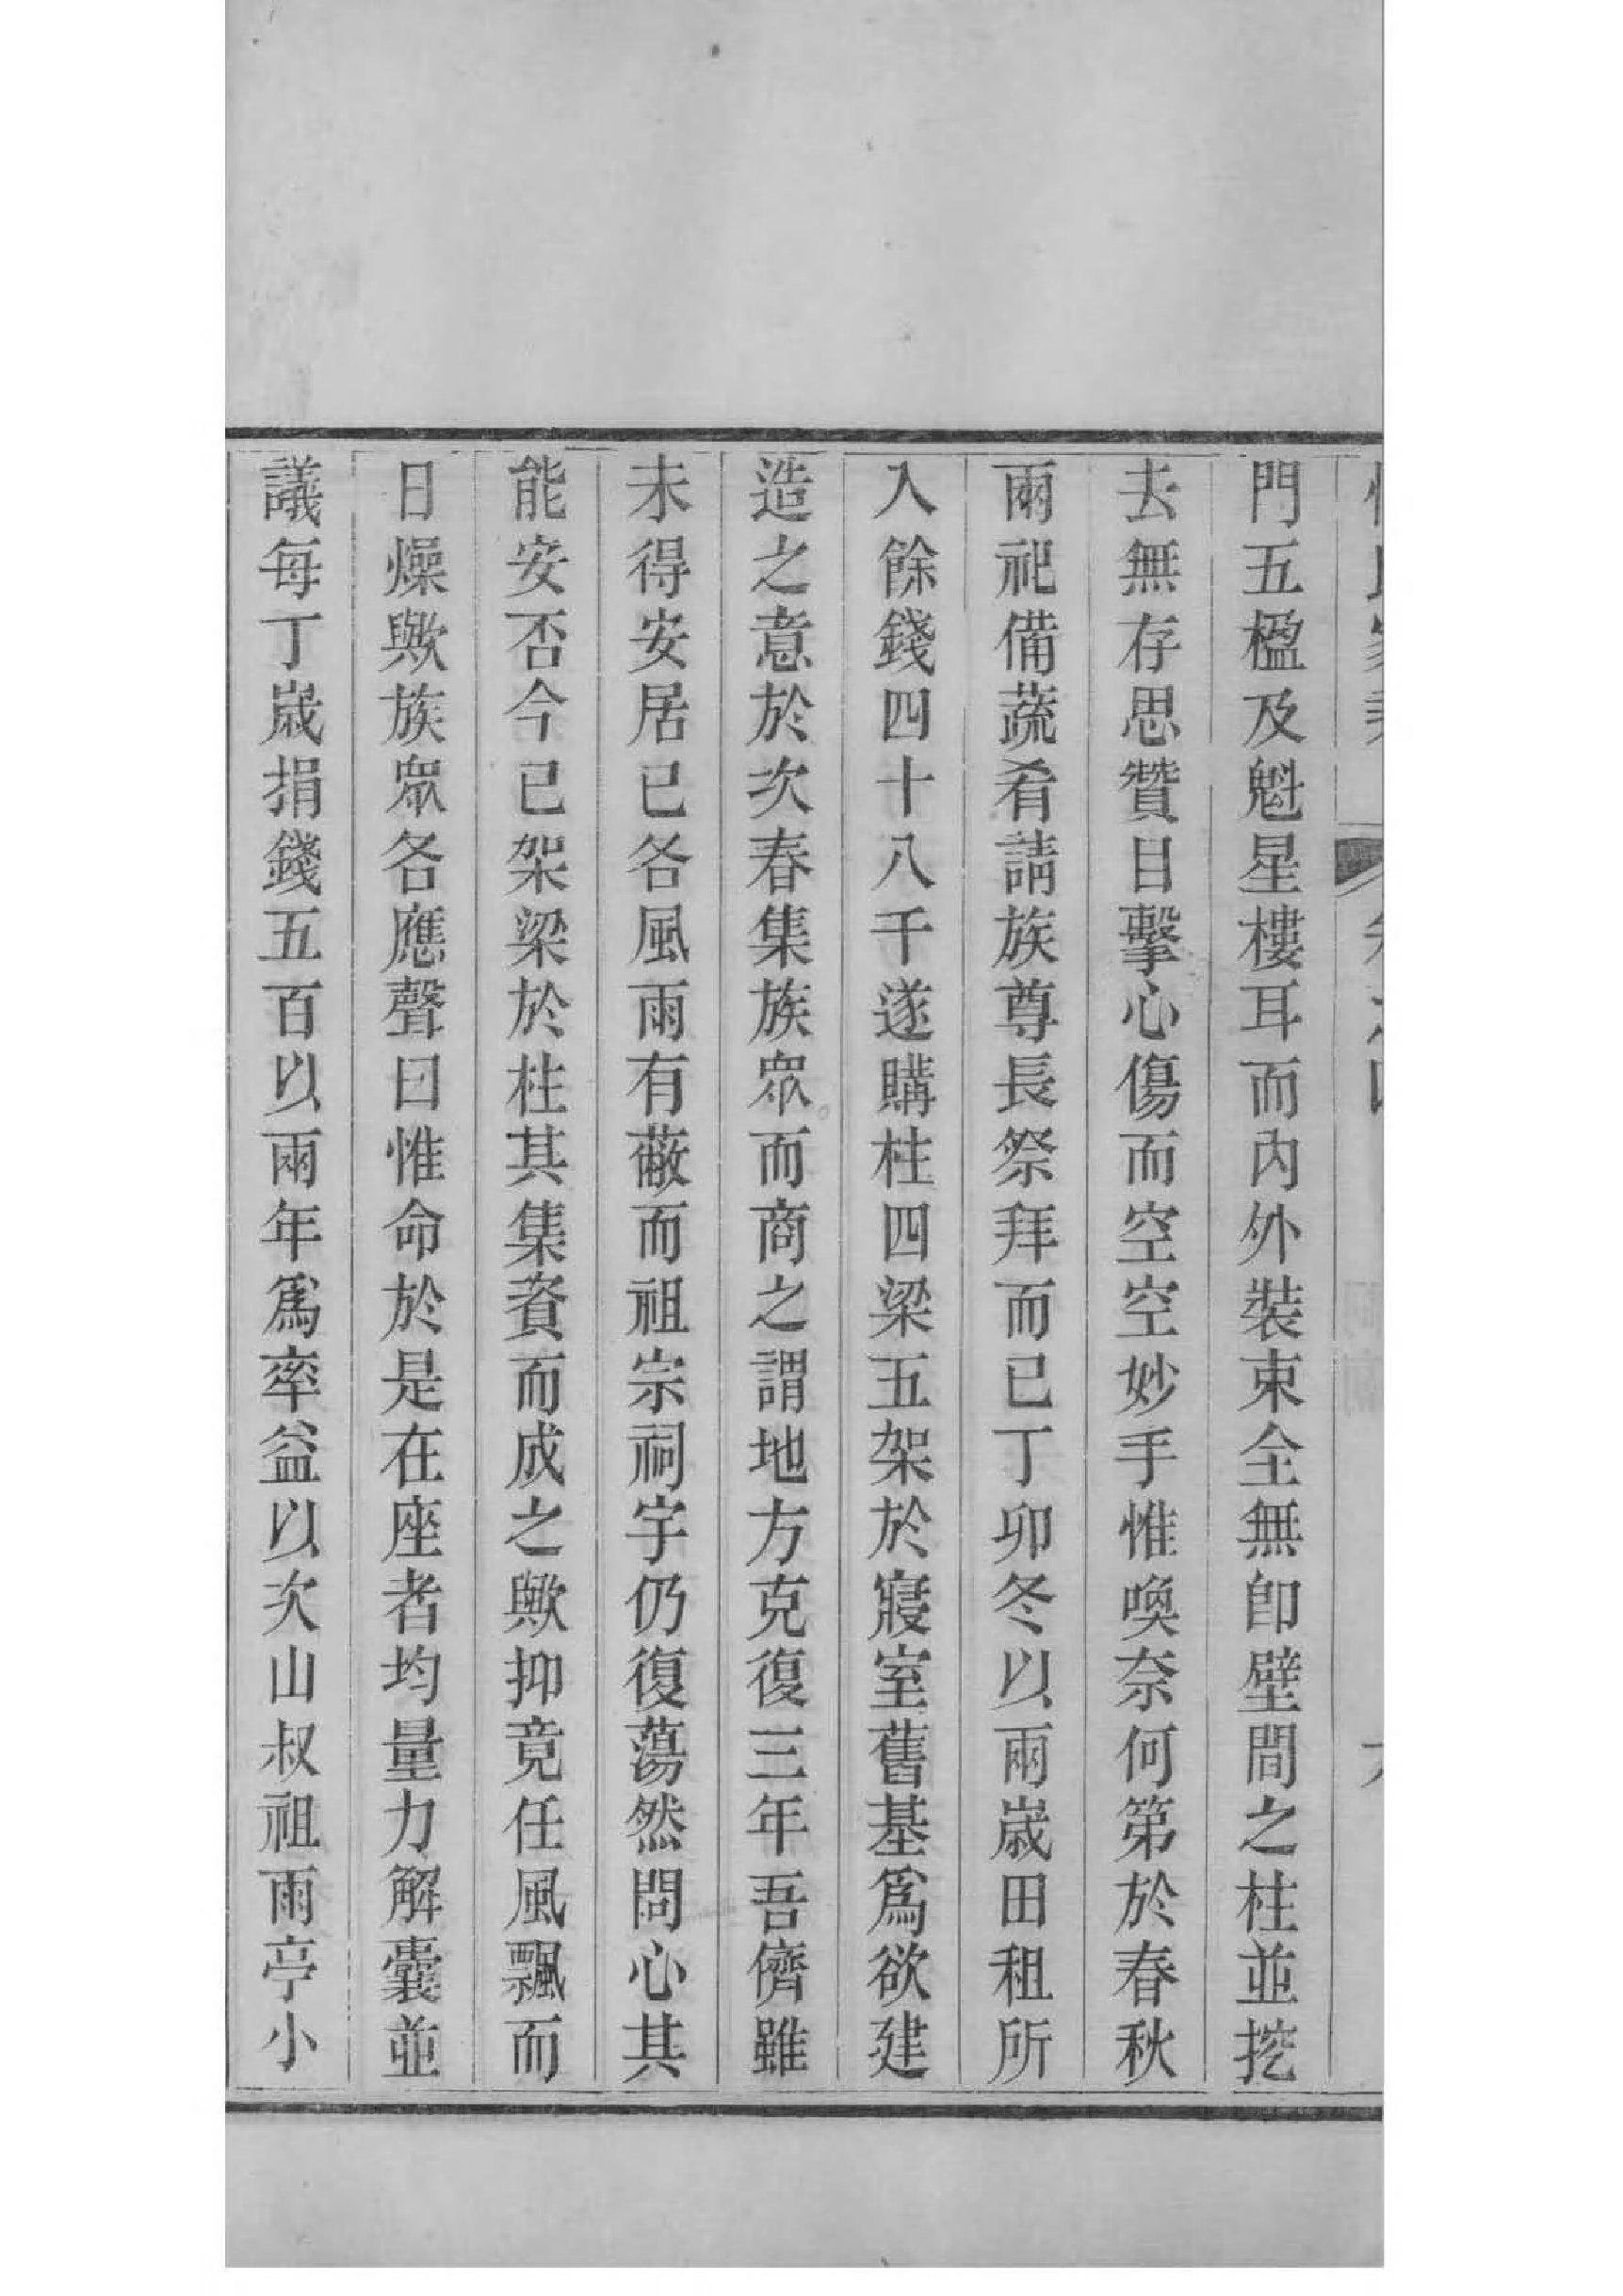 門五楹及魁星樓耳而內外裝束全無卽壁間之柱並挖
去無存思贊目擊心傷而空空妙手惟喚奈何第於春秋
兩祀備蔬肴請族尊長祭拜而已丁卯冬以兩歲田租所
入餘錢四十八千遂購柱四梁五架於寢室舊基爲欲建
造之意於次春集族眾而商之謂地方克復三年吾儕雖
未得安居已各風雨有蔽而祖宗祠宇仍復蕩然問心其
能安否今已架梁於柱其集資而成之歟抑竟任風飄而
日燥歟族眾各應聲曰惟命於是在座者均量力解囊並
議每丁歲捐錢五百以兩年爲率益以次山叔祖雨亭小